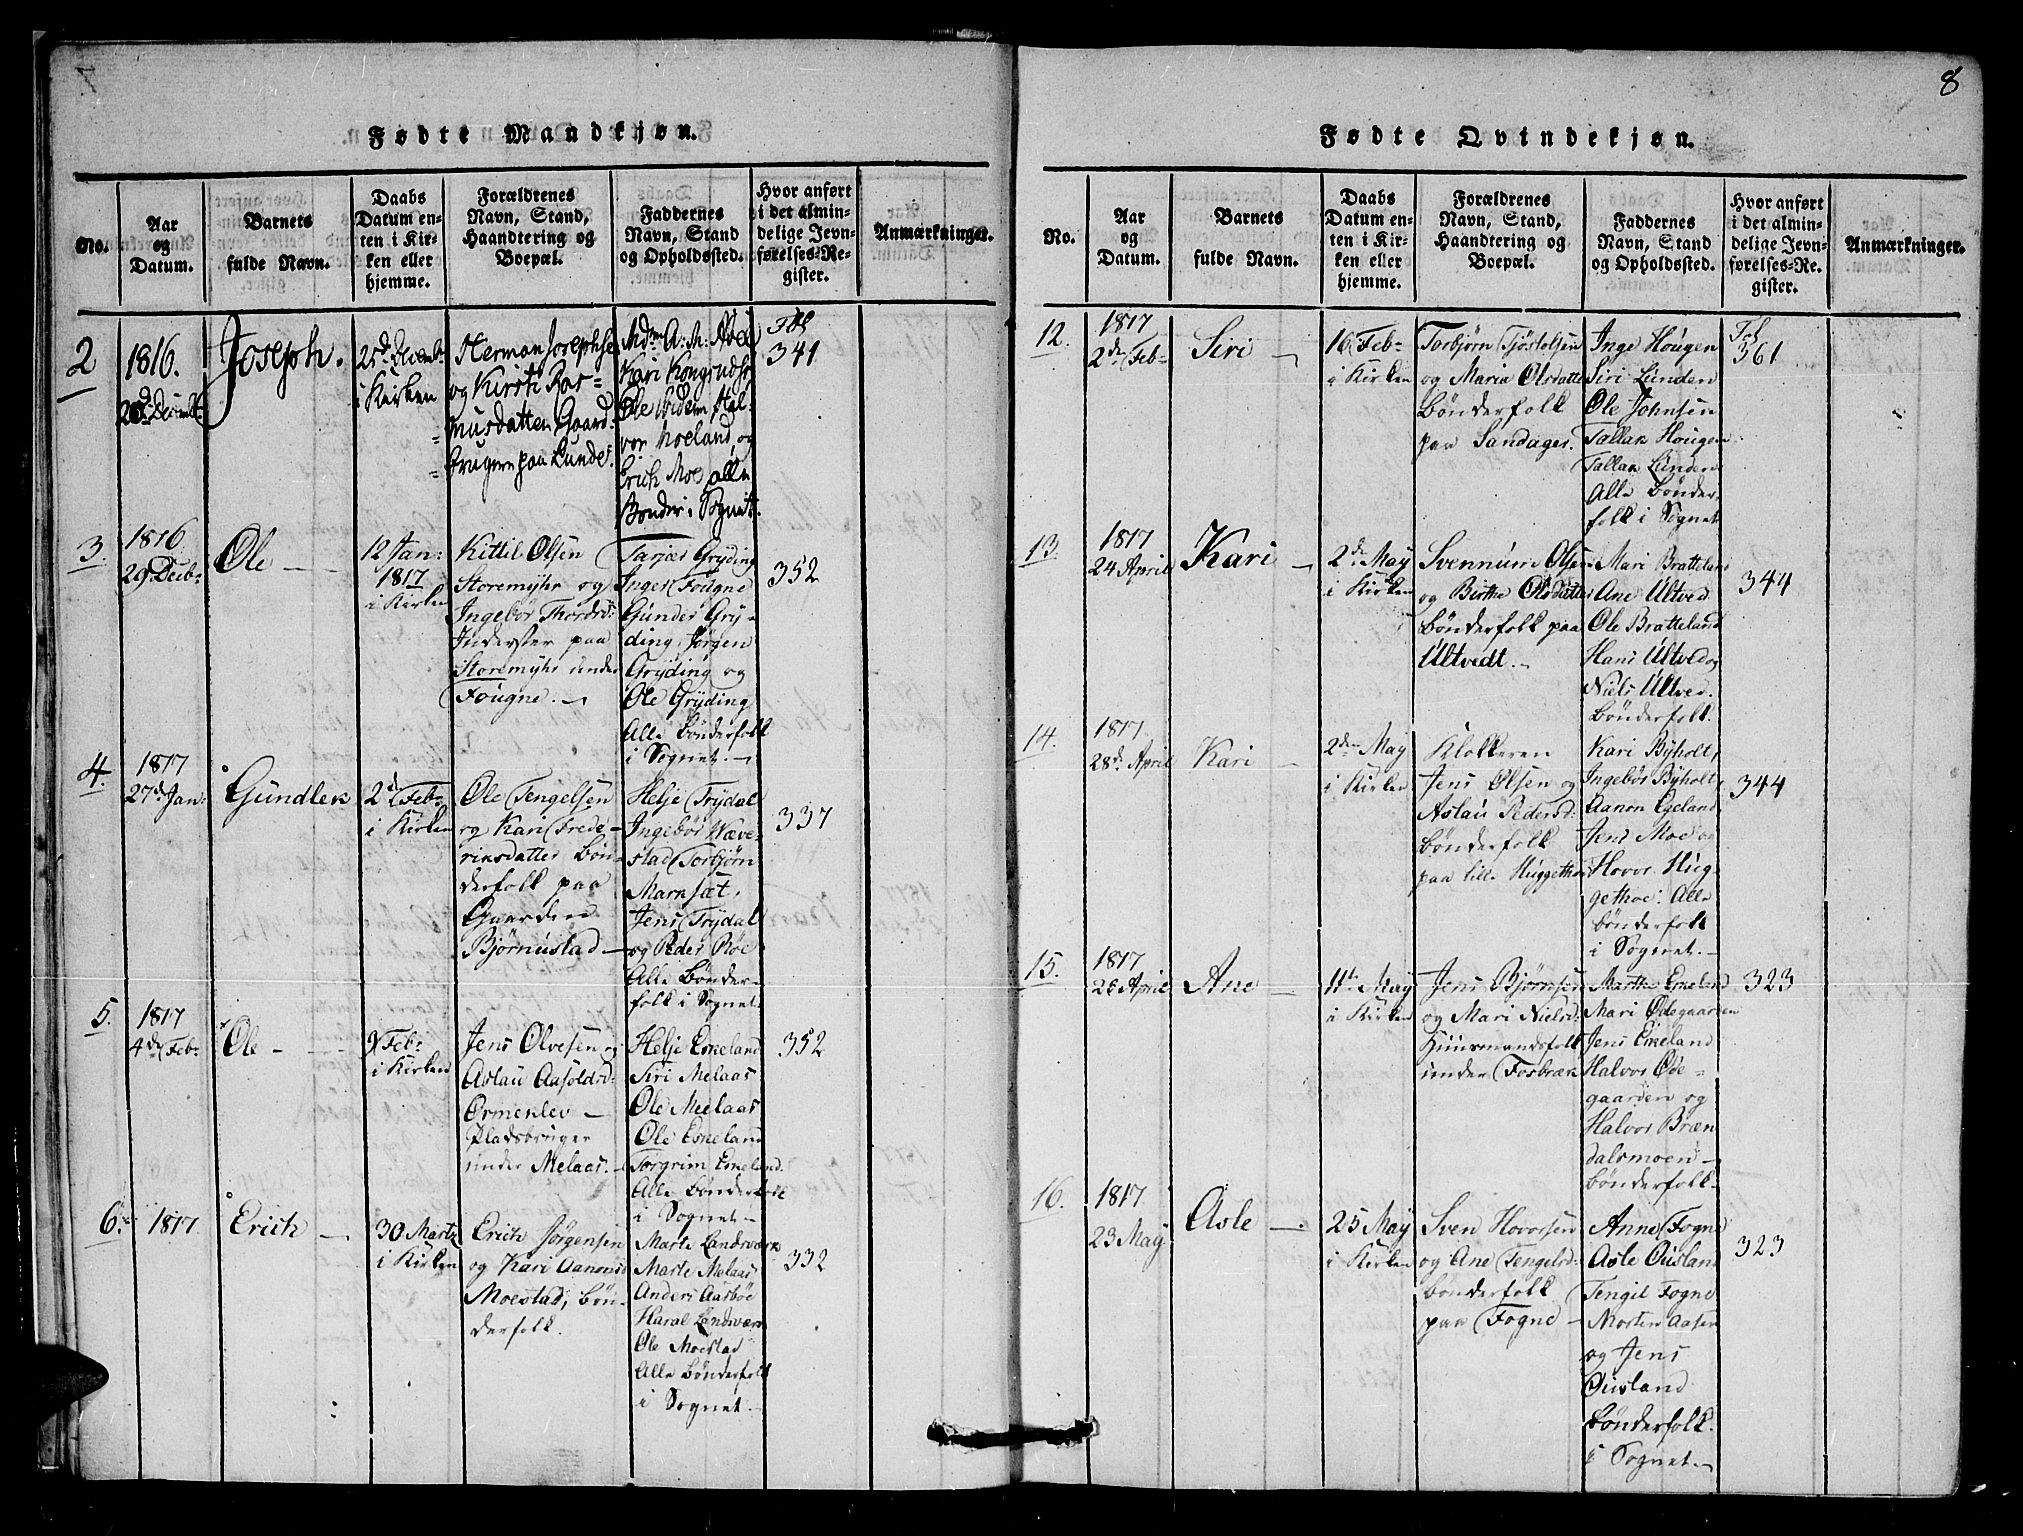 8
Fødte Mandkjøn.
No.
Aar
og
Datum.
Barnets
fulde Navn.
Daabs
Datum en-
ten i Kir-
ken eller
hjemme.
Forældrenes
Navn, Stand,
Haandtering og
Boepæl.
Faddernes
Navn, Stand
og Opholdssted.
Hvor anført
i det almin-
delige Jevn-
førelses-Re-
gister.
Anmærkninger.
2
1816.
Joseph.
i Kirken
Herman Josephsen
og Kirsti Ras-
musdatter Gaard-
brugere paa Lunde.
Ole
vor Moeland og
Erich Moe alle
Bønder i Sognet.
Fol
341
3.
1816
29 Decbr
Ole
12 Jan:
1817
i Kirken
Kittil Olsen
Storemyhr og
Ingebor Thordsd:
Inderster paa
Storemyhr under
Fougne.
Tarjer Gryding
Inger Fougne
Gunder Gry-
ding, Jørgen
Gryding og
Ole Gryding
Alle Bønderfolk
i Sognet.
352
4.
1817
27d Jan:
Gundlek
2d Feb:
i Kirken
Ole Tengelsen
og Kari Frede-
riksdatter Bøn-
derfolk paa
Gaarden
Bjørnustad
Helje Trydal
Ingebor Wæve-
stad Torbjørn
Marksæt,
Jens Trydal
og Peder Roe
Alle Bønder-
folk i Sognet.
337
5.
1817
4de Feb:
Ole
9 Feb:
i Kirken
Jens Olvesen og
Aslau Aasoldsd:
Ormeklev
Pladsbruger
under Melaas.
Helje Eskeland
Siri Melaas
Ole Meelaas
Ole Eskeland
Torgrim Eskeland.
Alle Bønderfolk
i Sognet
352
6.
1817
Erich
30 Martz
i Kirken
Erich Jørgensen
og Kari Aanonsd
Moestad, Bøn-
derfolk.
Marte Landsværk
Marte Melaas
Anders Aasbøe
Haral Landsværk
Ole Moestad
Alle Bønderfolk
i Sognet.
332
Fødte Qvindekjøn.
No.
Aar
og
Datum.
Barnets
fulde Navn.
Daabs
Datum en-
ten i Kir-
ken eller
hjemme.
Forældrenes
Navn, Stand,
Haandtering og
Boepæl.
Faddernes
Navn, Stand
og Opholdssted.
Hvor anført
i det almin-
delige Jevn-
førelses-Re.
gister.
Anmærkninger.
12.
1817
2den Feb:
Siri
16 Feb:
i Kirken
Torbjørn Tjøstelsen
og Maria Olsdatter
Bønderfolk
paa Sandager.
Inge Hougen
Siri Lunden
Ole Johnsen
Tallak Hougen
Tallak Lunden
Alle Bønder-
folk i Sognet
Fol
361
13.
1817
24 April
Kari
2de May
i Kirken
Svennum Olsen
og Birthe Olsdatter
Bønderfolk paa
Ultvedt.
Mari Bratteland
Ane Ultved
Ole Bratteland
Hans Ultved og
Niels Ultved.
Bønderfolk.
344
14.
1817
28d. April
Kari
2den May
i Kirken
Klokkeren
Jens Olsen og
Aslau Pedersd:
Bønderfolk
paa lille Huggethoe
Kari Byholt,
Ingebor Byholt,
Aanon Egeland
Jens Moe og
Hovor Hug-
gethoe: Alle
Bønderfolk
i Sognet.
344
15.
1817
26 April
Ane
11te May
i Kirken
Jens Bjørnsen
og Mari Nielsd:
Huusmandsfolk
under Fosbræk
Marthe Eskeland
Mari Ødegaarden
Jens Eskeland
Halvor Øde-
gaarden og
Halvor Bræn
dalsmoen
Bønderfolk
323
16.
1817
23 May
Asle
25 May
i Kirken
Sven Hovorsen
og Ane Tengelsd:
Bønderfolk
paa Fogne
Anne Fogne
Asle Ousland
Tengil Fogne
Morten Aasen
og Jens
Ousland
Bønderfolk.
i Sognet.
323